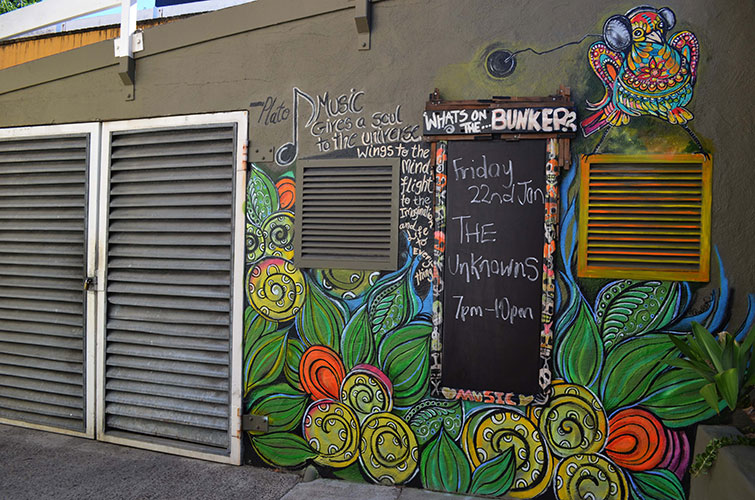 Plato
Music
Gives a soul
to the universe
Wings to the
Mind
flight
to the
Imagination
and
Life to
Everything
WHATS ON
THE... BUNKER?
Friday
22nd Jan
THE
UnKnowns
7pm-10pm
MUSIC